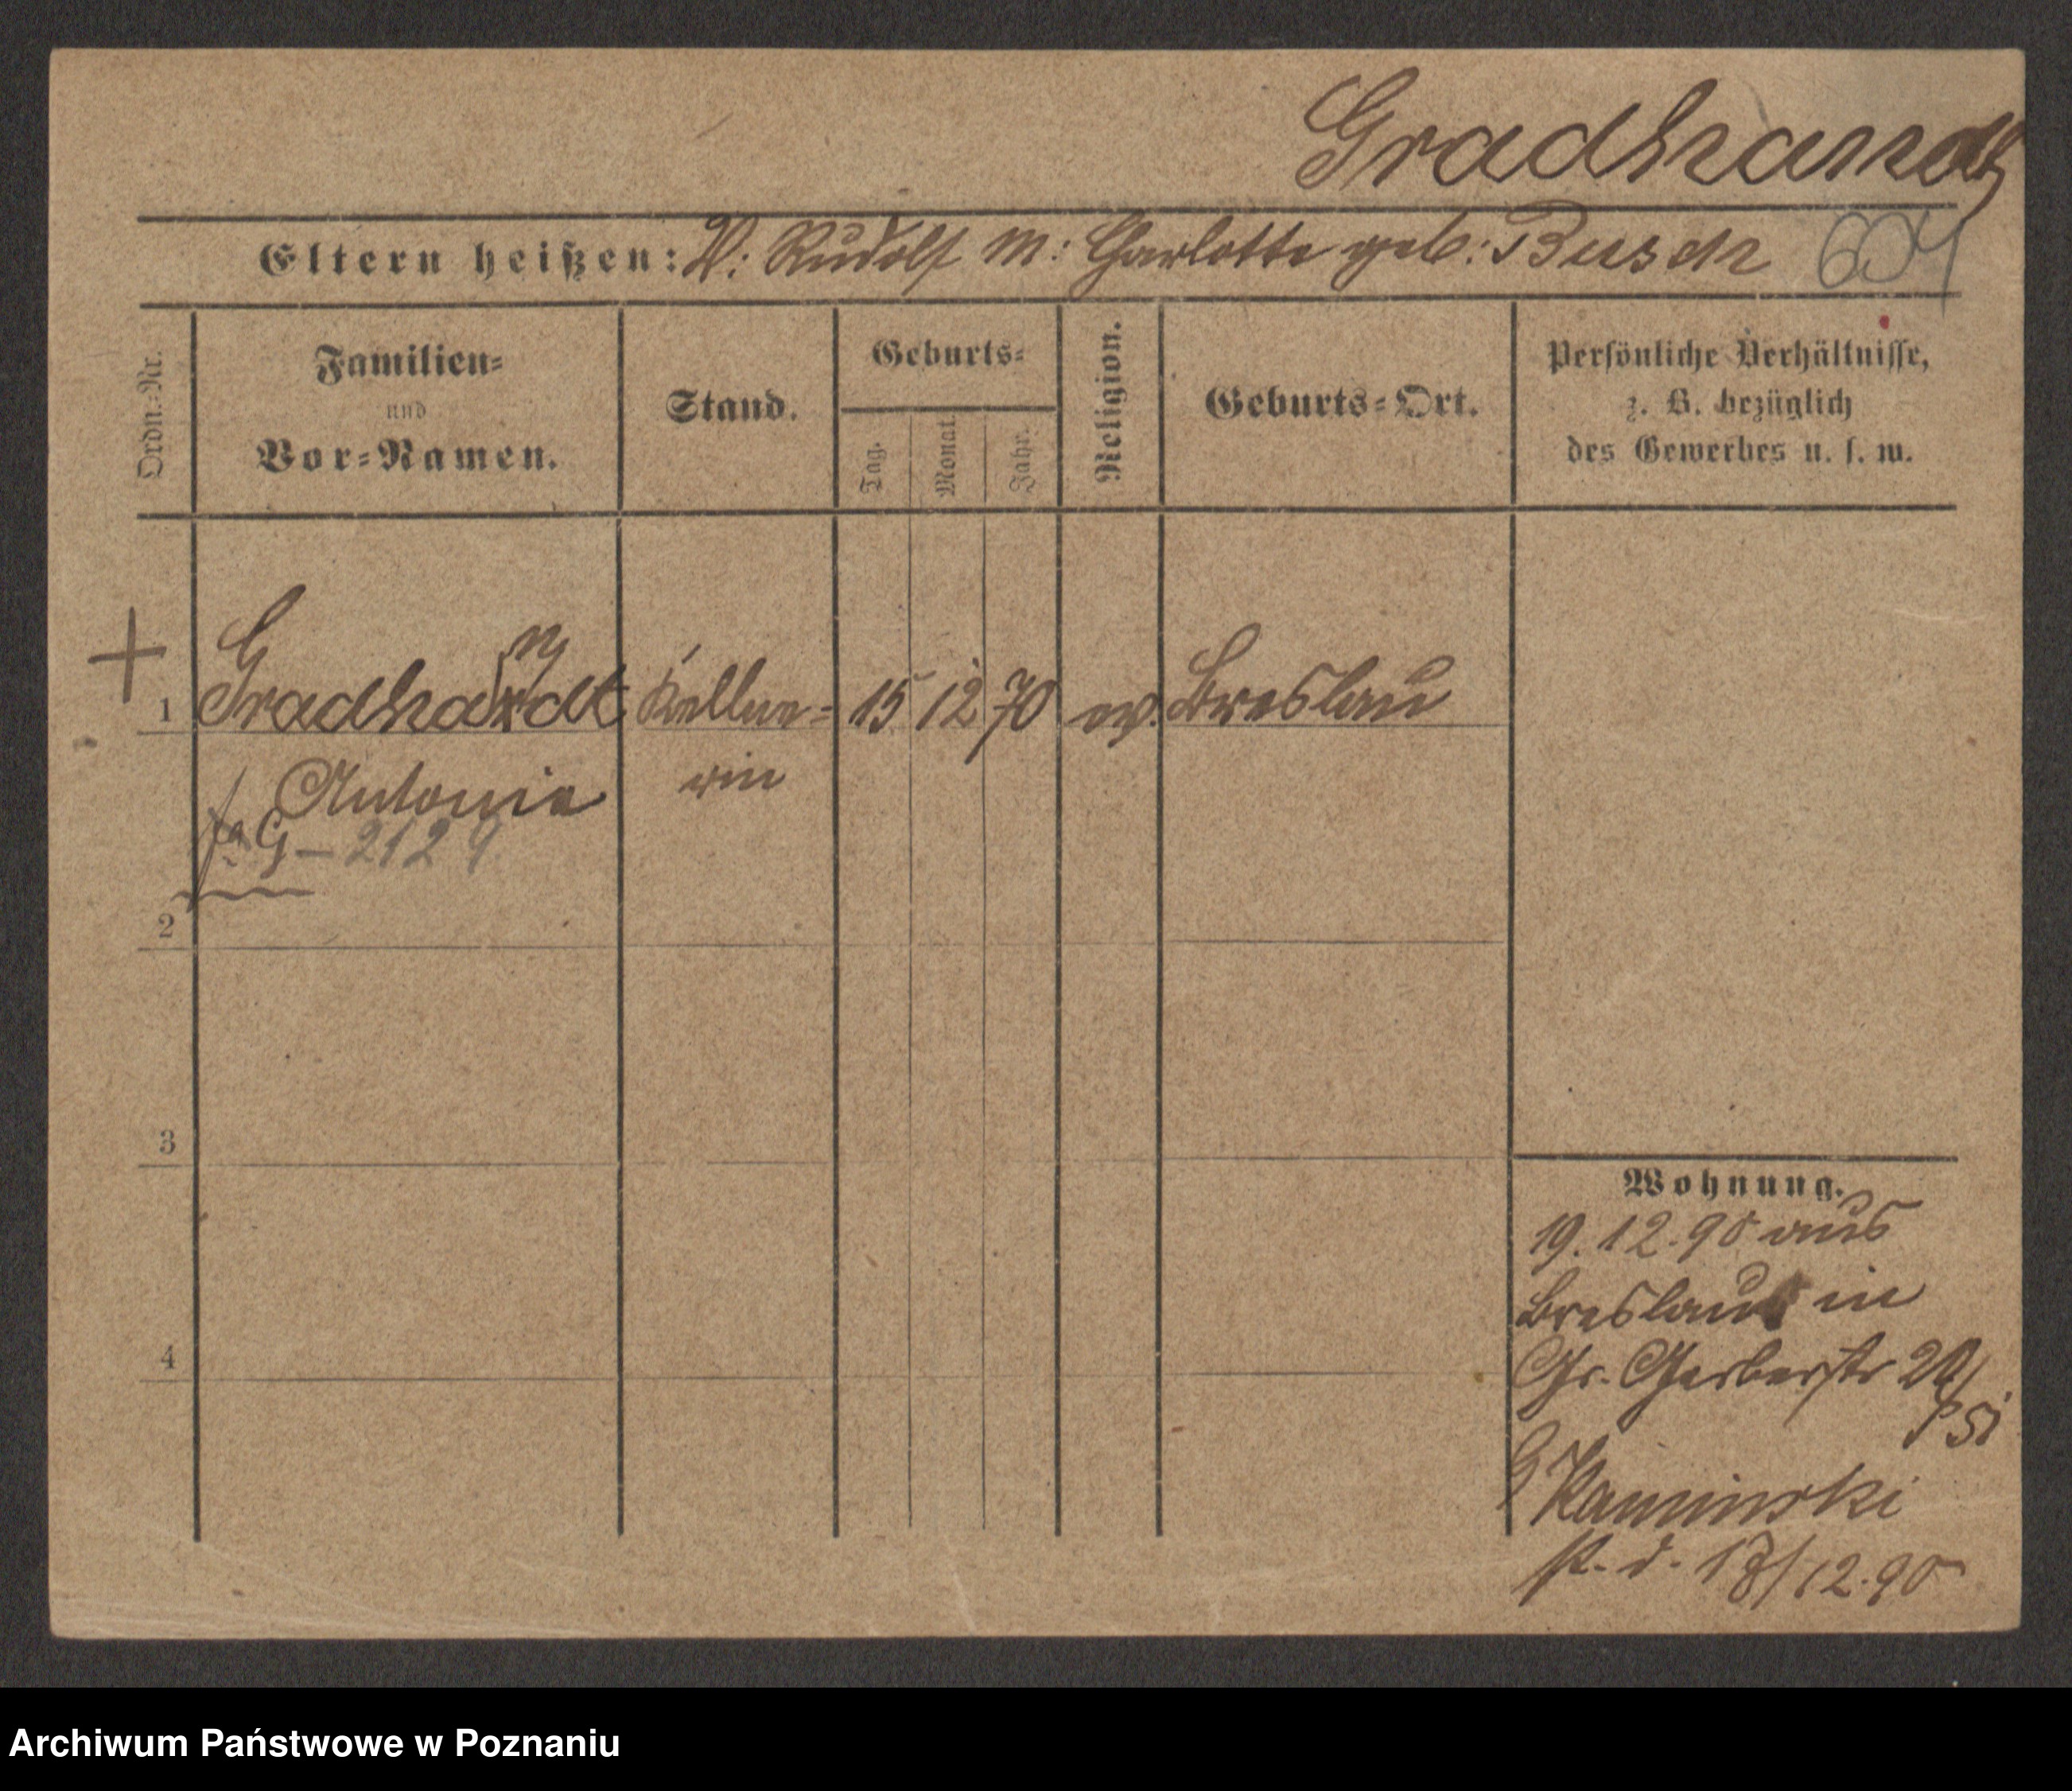 Gradhandt
Eltern heißen: V: Rudolf M: Charlotte geb: Busch 604
Ordn.-Nr.
Familien-
und
Vor-Namen.
Stand.
Geburts-
Tag.
Monat.
Jahr.
Religion.
Geburts-Ort.
Persönliche Verhältnisse,
z. B. bezüglich
des Gewerbes u. s. w.
n
1 Gradhardt Kellne- 15 12 70 ev. Breslau
Antonie rin
G - 2129
2
3
4
Wohnung.
19.12.90 aus
Breslau in
Gr. Gerberstr 20
Kaminski
p. d. 18/12.90
Archiwum Państwowe w Poznaniu